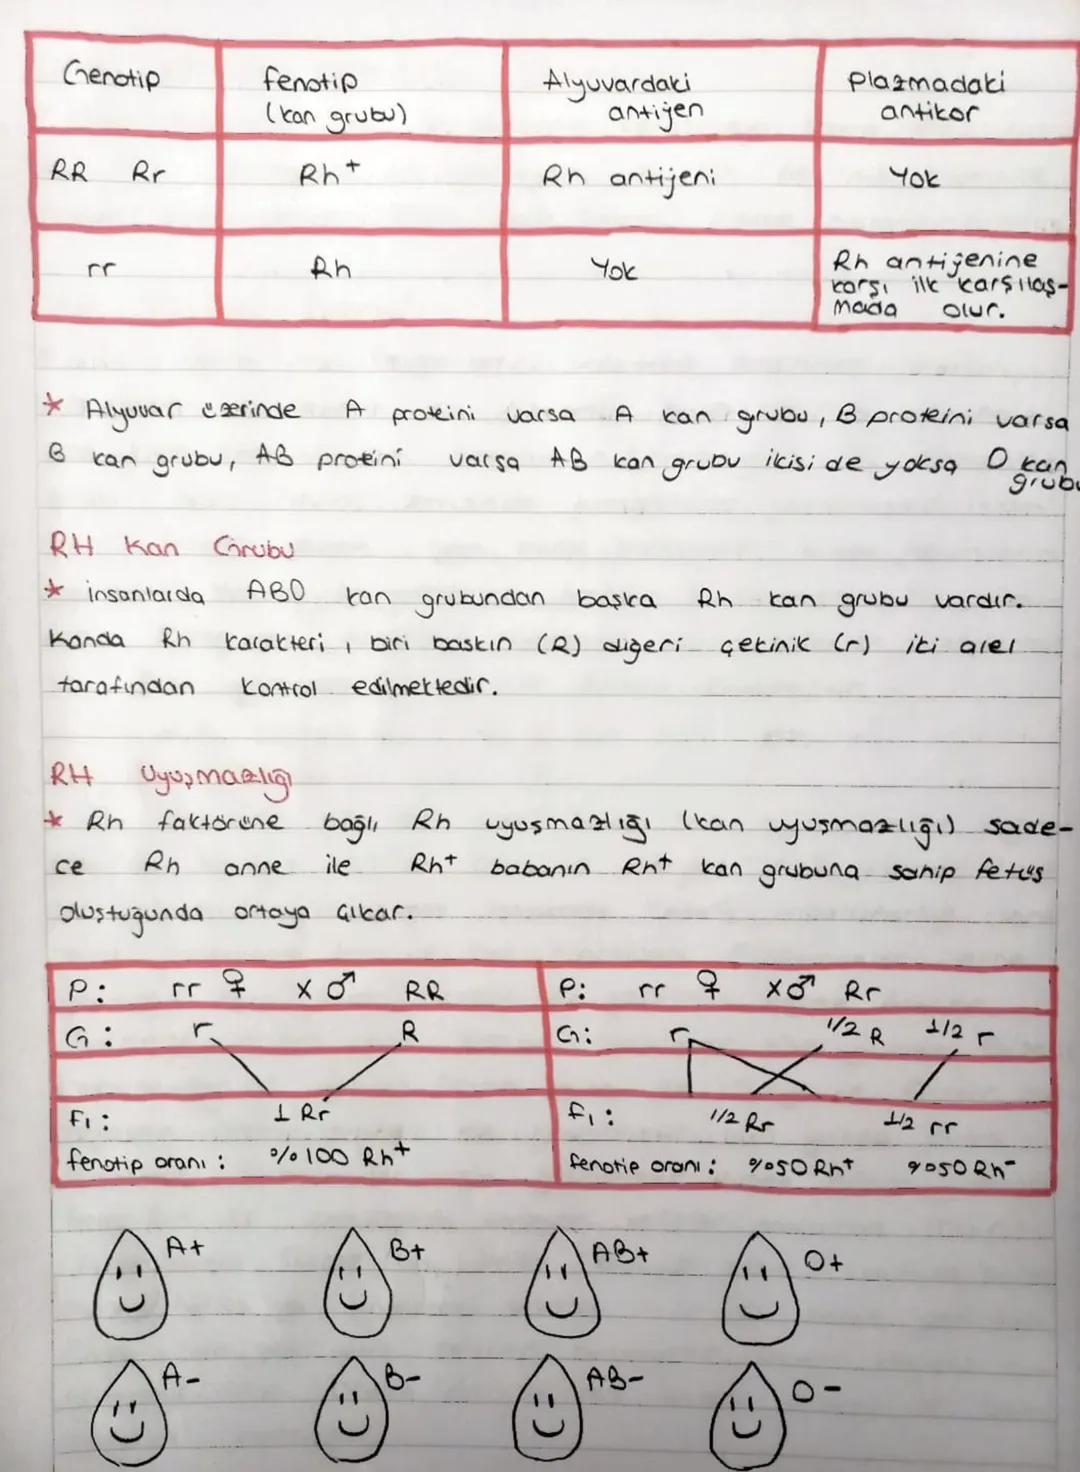 Genotip fenotip (kan grubu) Alyuvardaki antijen Plazmadaki antikor
RR Rr Rh+ Rh antijeni Yok
rr Rh Yok Rh antijenine karşı ilk karşılaş-mada olur.
* Alyuvar üzerinde A proteini varsa A kan grubu, B proteini varsa
B kan grubu, AB proteini varsa AB kan grubu ikisi de yoksa O kan grubu
RH Kan Grubu
* insanlarda ABO kan grubundan başka Rh kan grubu vardır.
Kanda Rh karakteri, biri baskın (R) diğeri çekinik (r) iki alel
tarafından kontrol edilmektedir.
RH Uyuşmazlığı
* Rh faktörüne bağlı Rh uyuşmazlığı (kan uyuşmazlığı) sade-
ce Rh anne ile Rh+ babanın Rh+ kan grubuna sahip fetüs
oluştuğunda ortaya çıkar.
P: rr ♀ x ♂ RR P: rr ♀ x ♂ Rr
G: r R G: r 1/2 R 1/2 r
F1: 1 Rr F1: 1/2 Rr 1/2 rr
fenotip oranı: %100 Rh+ fenotip oranı: %50 Rh+ %50 Rh-
A+ B+ AB+ O+
A- B- AB- O-